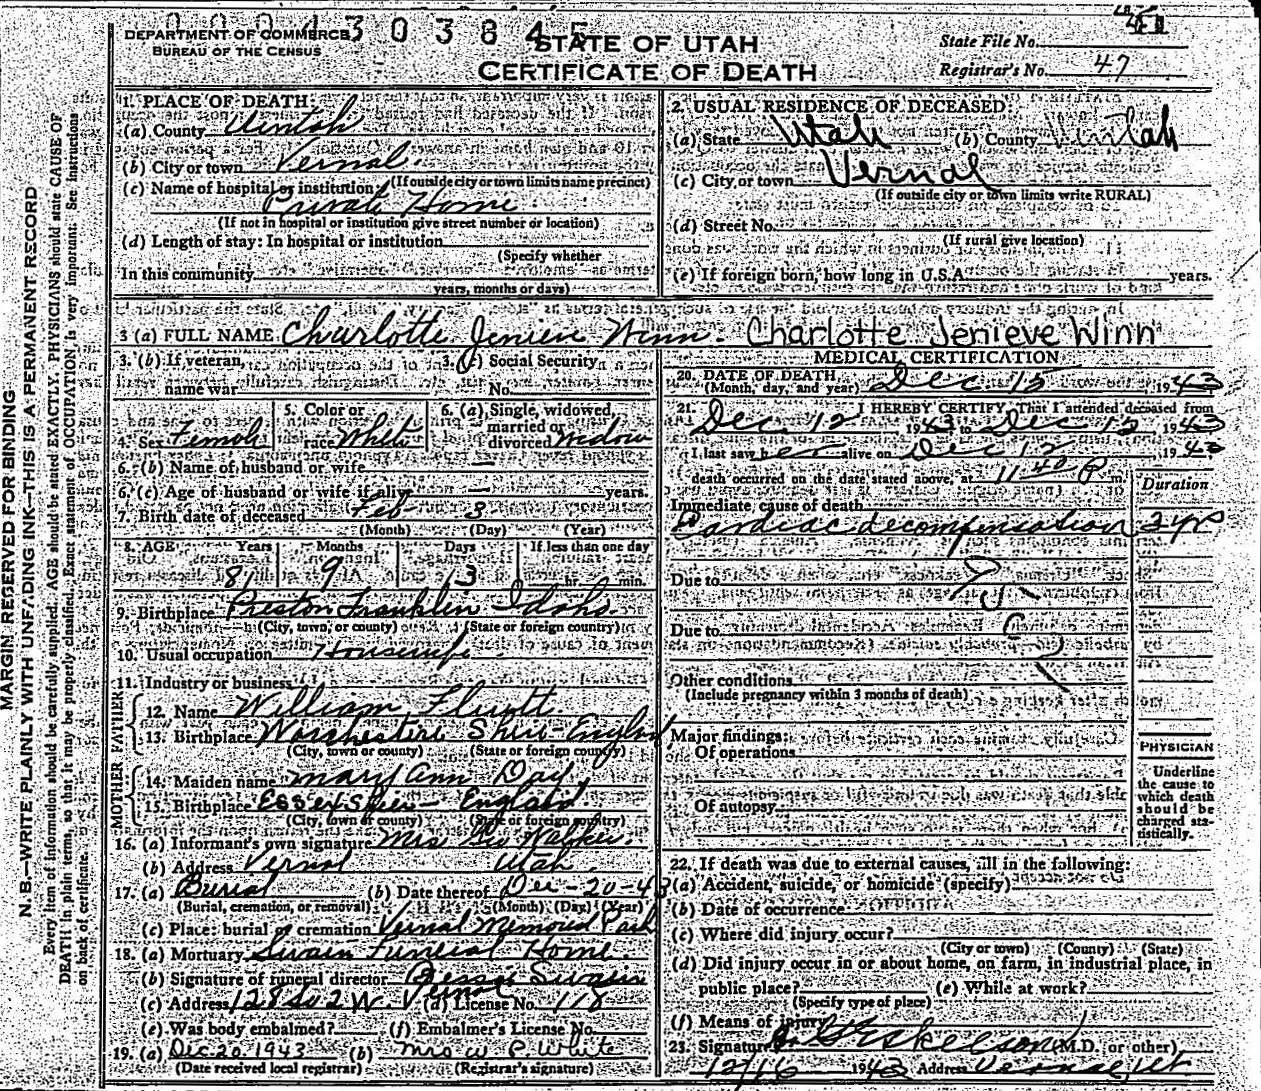 0004303845
DEPARTMENT OF COMMERCE
BUREAU OF THE CENSUS
STATE OF UTAH
CERTIFICATE OF DEATH
State File No.
Registrar's No. 47
MARGIN RESERVED FOR BINDING
N. B.—WRITE PLAINLY WITH UNFADING INK—THIS IS A PERMANENT RECORD
Every item of information should be carefully supplied. AGE should be stated EXACTLY. PHYSICIANS should state CAUSE OF
DEATH in plain terms, so that it may be properly classified. Exact statement of OCCUPATION is very important. See Instructions
on back of certificate.
1. PLACE OF DEATH:
(a) County Uintah
(b) City or town Vernal.
(If outside city or town limits name precinct)
(c) Name of hospital or institution:
Private Home.
(If not in hospital or institution give street number or location)
(d) Length of stay: In hospital or institution
(Specify whether
In this community
years, months or days)
2. USUAL RESIDENCE OF DECEASED:
(a) State Utah (b) County Uintah
(c) City or town Vernal
(If outside city or town limits write RURAL)
(d) Street No.
(If rural give location)
(e) If foreign born, how long in U.S.A. years.
3 (a) FULL NAME Charlotte Jenieve Winn. Charlotte Jenieve Winn
3. (b) If veteran, name war
3. (c) Social Security No.
4. Sex Female
5. Color or race White
6. (a) Single, widowed, married or divorced Widow
6. (b) Name of husband or wife —
6. (c) Age of husband or wife if alive — years.
7. Birth date of deceased Feb 3
(Month) (Day) (Year)
8. AGE Years Months Days If less than one day
81 9 13 hr. min.
9. Birthplace Preston Franklin Idaho.
(City, town, or county) (State or foreign country)
10. Usual occupation Housewife
11. Industry or business
FATHER
12. Name William
13. Birthplace Worchestere Shire-England
(City, town or county) (State or foreign country)
MOTHER
14. Maiden name Mary Ann Day
15. Birthplace Essex Shire - England
(City, town or county) (State or foreign country)
16. (a) Informant's own signature Mrs Geo Walker.
(b) Address Vernal Utah
17. (a) Burial (b) Date thereof Dec-20-43
(Burial, cremation, or removal) (Month) (Day) (Year)
(c) Place: burial or cremation Vernal Memorial Park
18. (a) Mortuary Swain Funeral Home.
(b) Signature of funeral director Swain
(c) Address 128 So 2 W. Vernal (d) License No. 118
(e) Was body embalmed? (f) Embalmer's License No.
19. (a) Dec. 20. 1943 (b) Mrs W P White
(Date received local registrar) (Registrar's signature)
MEDICAL CERTIFICATION
20. DATE OF DEATH
(Month, day, and year) Dec 15 1943
21. I HEREBY CERTIFY, That I attended deceased from
Dec 12 1943 to Dec 12 1943
I last saw her alive on Dec 12 1943
death occurred on the date stated above, at 11 40 P m.
Duration
Immediate cause of death
Cardiac decompensation 2 yrs
Due to
Due to
Other conditions
(Include pregnancy within 3 months of death)
Major findings:
Of operations
Of autopsy
PHYSICIAN
Underline
the cause to
which death
should be
charged sta-
tistically.
22. If death was due to external causes, fill in the following:
(a) Accident, suicide, or homicide (specify)
(b) Date of occurrence
(c) Where did injury occur?
(City or town) (County) (State)
(d) Did injury occur in or about home, on farm, in industrial place, in
public place? (e) While at work?
(Specify type of place)
(f) Means of injury
23. Signature Eskelson (M.D. or other)
12/16 1943 Address Vernal, Ut